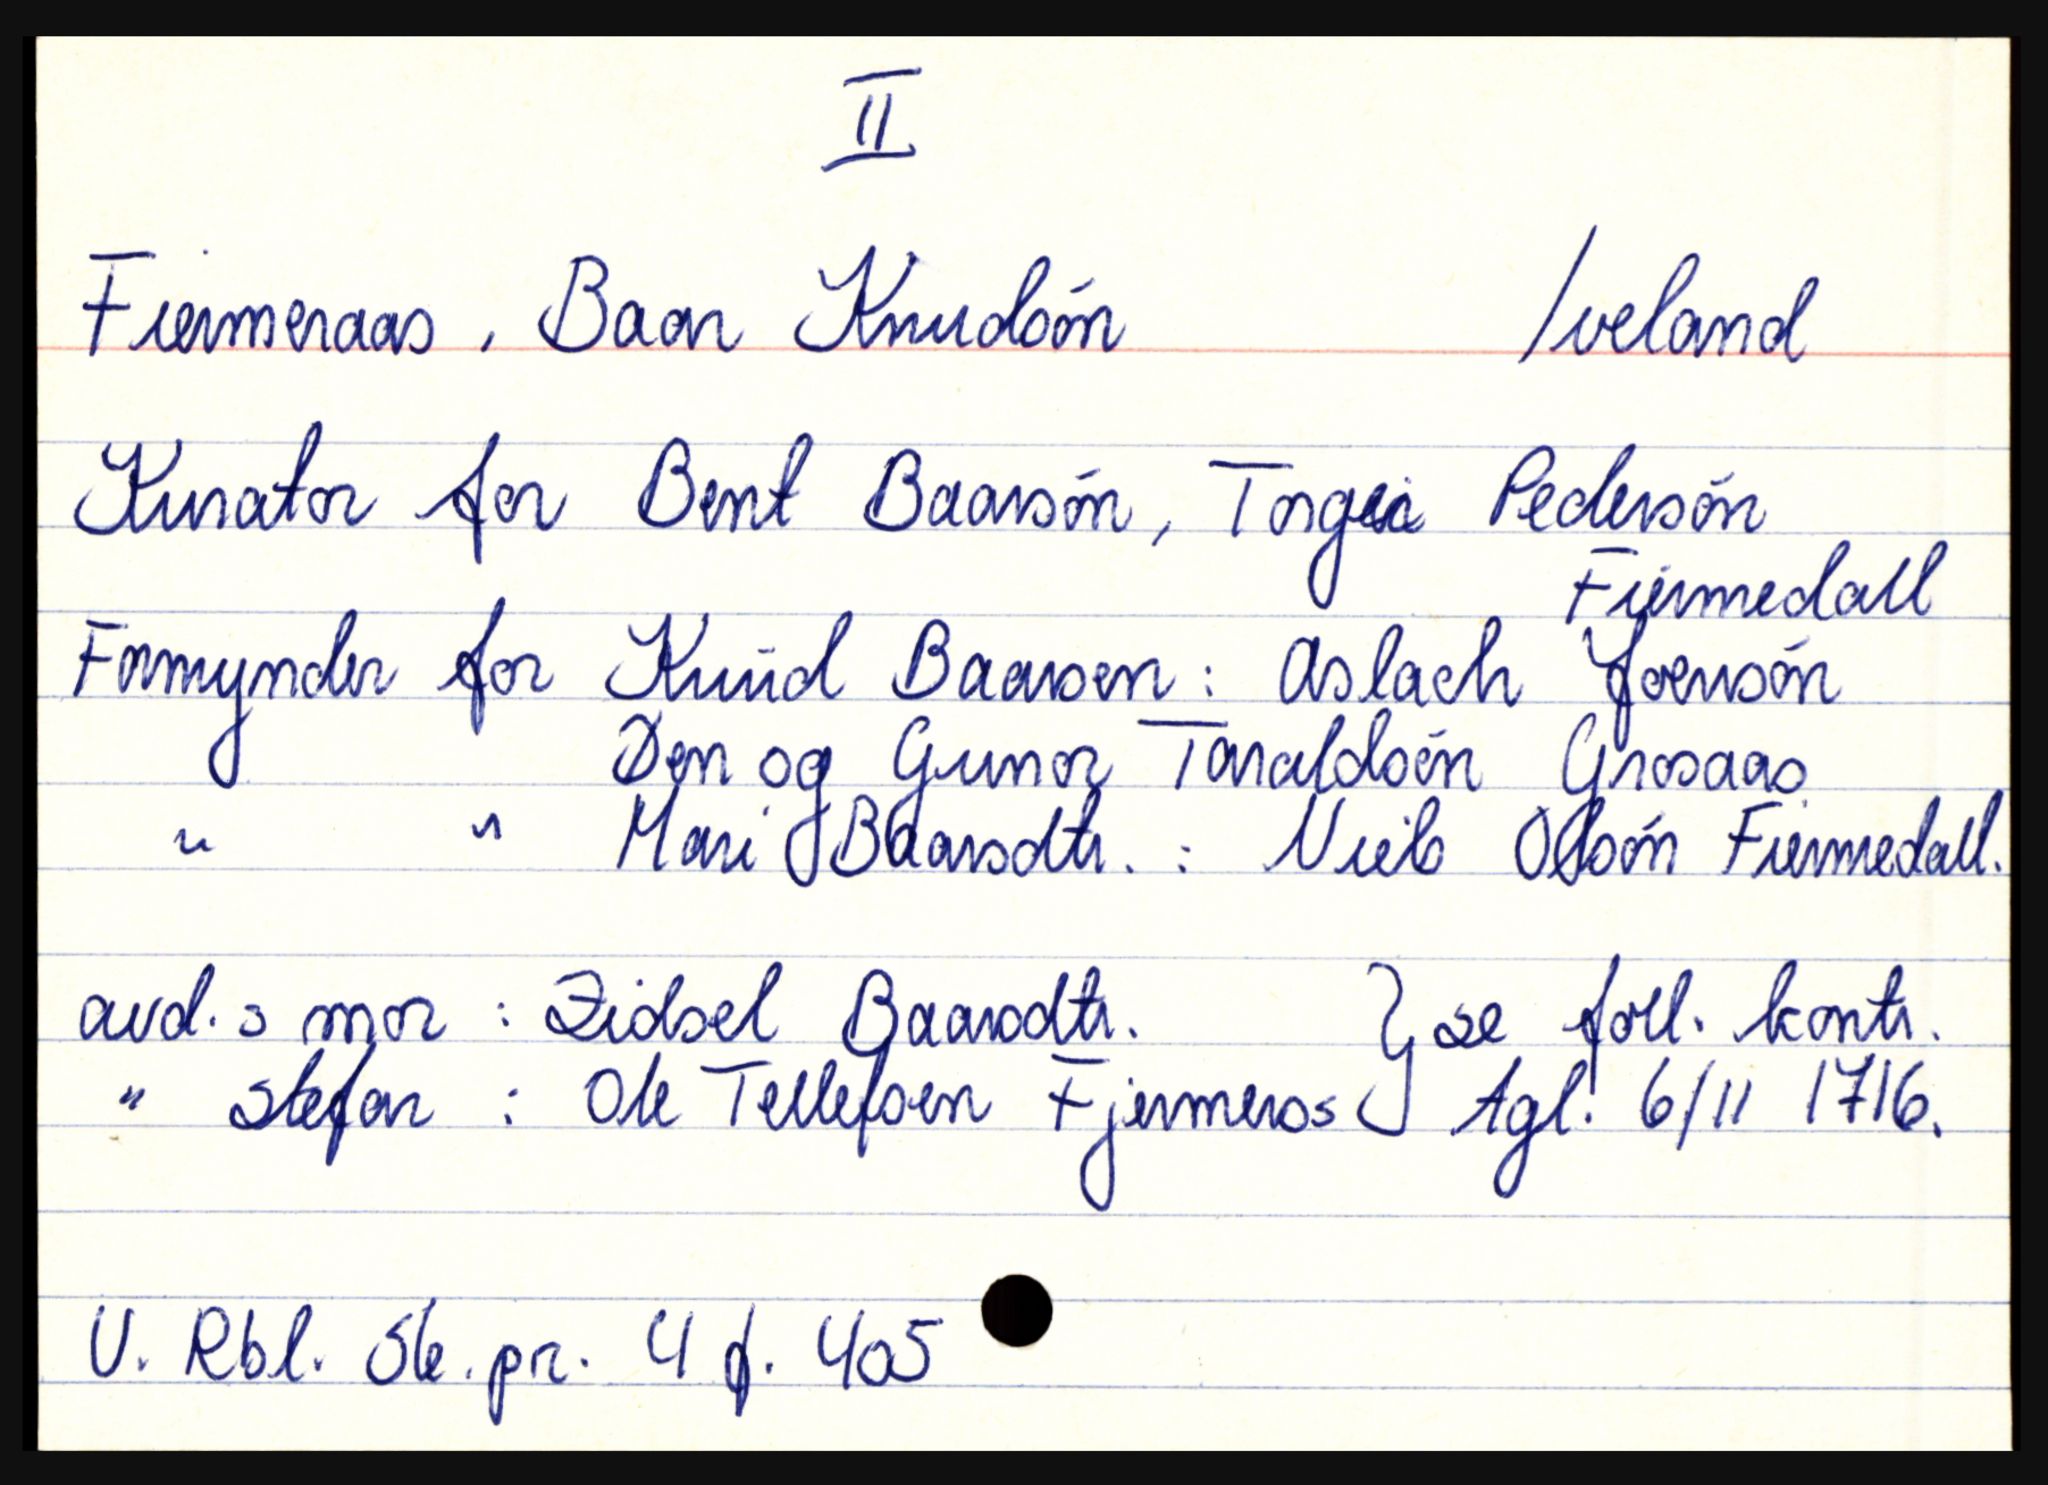 II
Fiermeraas, Baar Knudsón Iveland
Kurator for Bent Baarsón, Torgei Pedersón
Fiermedall
Formynder for Knŭd Baarsen: Aslach Joensón
Øen og Gunor Taraldsén Grosaas
" " Mari Baarsdtr. : Niels Olsón Fiermedall.
avd. s mor : Zidsel Baarsdtr. } se foll. kontr.
" stefar : Ole Tellefsen Fjermeros } tgl. 6/11 1716.
V. Rbl. Sk. pr. 4 f. 405